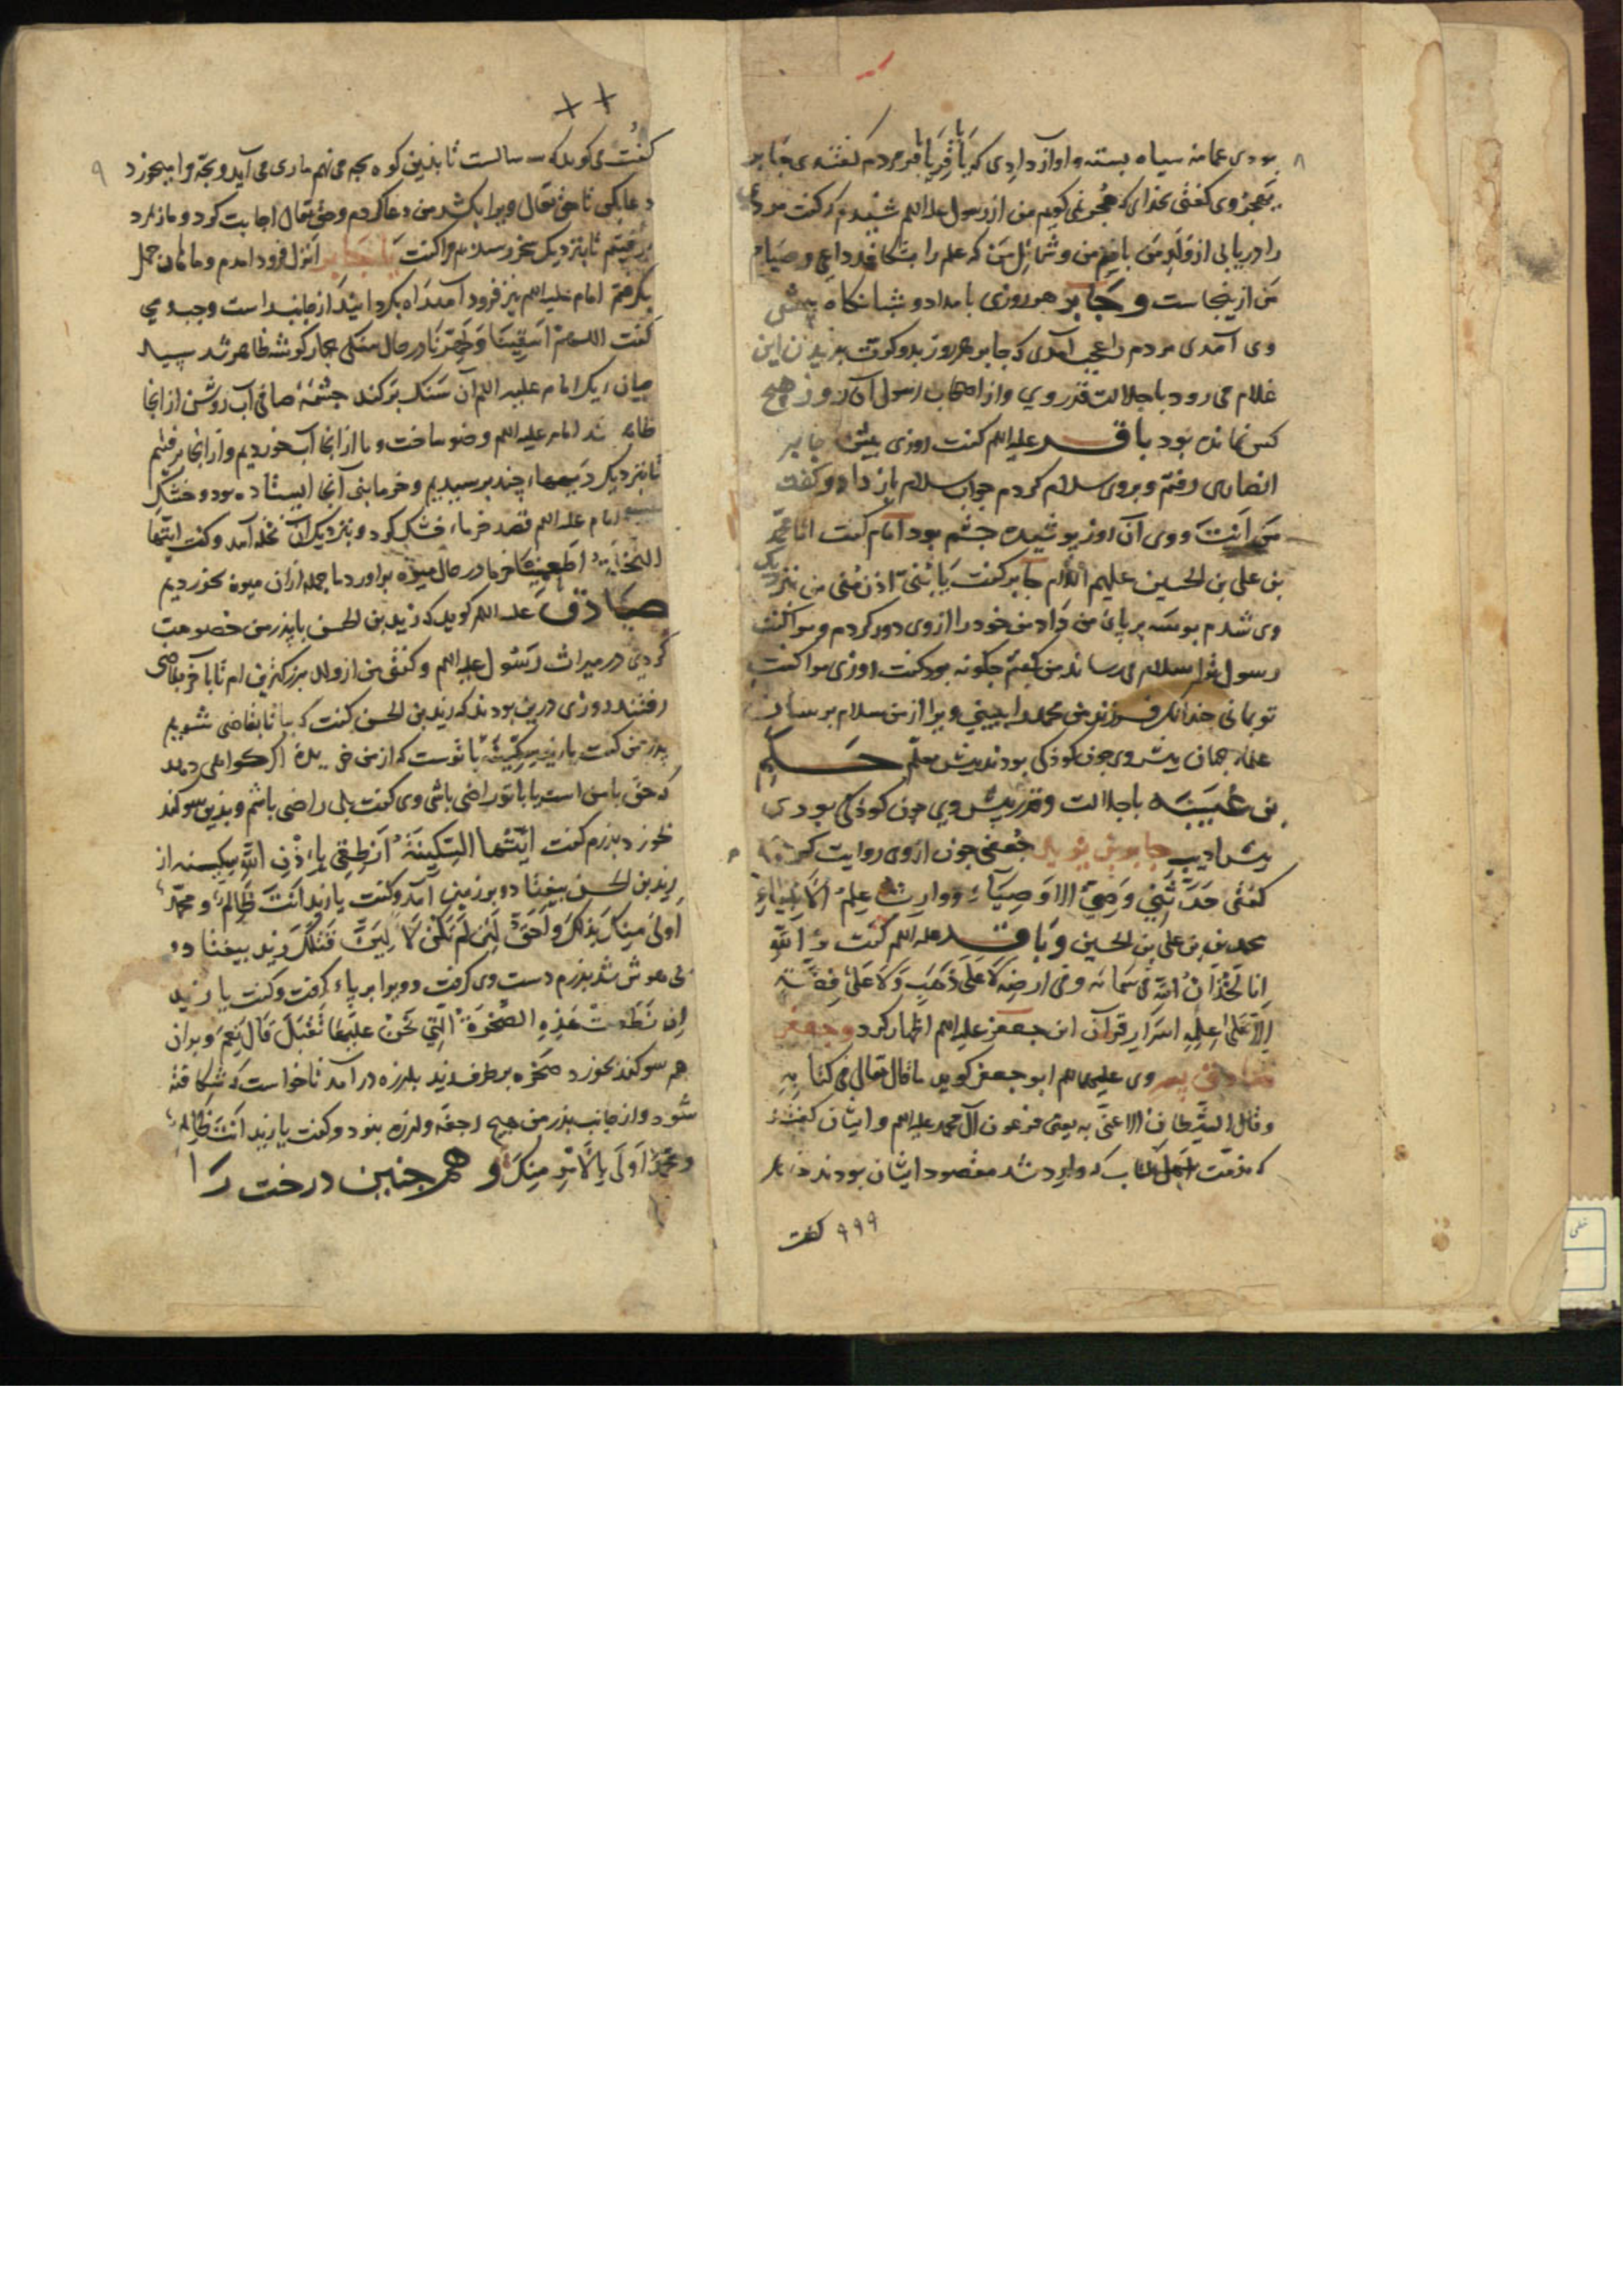 ۸
بودی عمامه سیاه بسته و اواز دادی که یا باقر یا باقر مردم گفتندی جابر
وی گفتی بخدای که هجر نمی کویم من از رسول علیه السلم شنیدم که گفت مردی
را دریابی از ولد من بانام من و شمائل من که علم را بشکافد
من ازینجاست و جابر هر روزی بامداد و شبانکاه پیش
وی آمدی مردم را عجب آمدی که جابر هر روز بدو کرت بدیدن این
غلام می رود با جلالت قدر وی و از اصحاب رسول آن روز هیچ
کس نمانده بود باقر علیه السلم کفت روزی پیش جابر
انصاری رفتم و بر وی سلام کردم جواب سلام باز داد و کفت
من انت و وی آن روز پوشیده چشم بود امام کفت انا محمد
بن علی بن الحسین علیهم السلام جابر کفت یا بنی ادن منی من نزدیک
وی شدم بوسه بر پای من داد من خود را از وی دور کردم و مرا کفت
رسول ترا سلام می رساند من کفتم چکونه بود کفت روزی مرا کفت
تو بمانی چندانک فرزند من محمد را ببینی ویرا از من سلام برسان
علماء جهان پیش وی چون کوذکی بودند پیش معلم حکم
بن عیینه با جلالت و قدر پیش وی چون کوذکی بودی
پیش ادیب جابر بن یزید جعفی چون از وی روایت کردی
کفتی حدثنی وصی الاوصیاء و وارث علم الانبیاء
محمد بن علی بن الحسین و باقر علیه السلم کفت و الله
انا لخزان الله فی سمائه و فی ارضه لا علی ذهب و لا علی فضة
الا علی علمه اسرار قرآن ابو جعفر علیه السلم اظهار کرد و جعفر
صادق پسر وی علیهما السلم ابو جعفر کوید ما قال تعالی فی کتابه
و قال الشیطان الا عنی به یعنی فرعون آل محمد علیه السلم و ایشان کفتند
که مذمت اهل کتاب که وارد شد مقصود ایشان بودند
۹۹۹ کفت
++
۹
کفت می کوید که سه سالست تا بذین کوه بچه می نهم ماری می آید و بچه مرا میخورد
دعا بکن تا حق تعالی ویرا بکشد من دعا کردم و حق تعالی اجابت کرد و مار مرد
برفتیم تا بنزدیک سحر رسیدم مرا کفت یا جابر انزل فرود امدم و
بکرفتم امام علیه السلم نیز فرود آمد از جانب راست و چپ و می
کفت اللهم اسقینا و طهرنا در حال سنکی چهار کوشه ظاهر شد سپید
میان ریک امام علیه السلم آن سنک برکند چشمهٔ صافی آب روشن از انجا
ظاهر شد امام علیه السلم وضو ساخت و ما از انجا آب خوردیم و از انجا برفتیم
تا بنزدیک دیهها چند برسیدیم و خرما بنی آنجا ایستاده بود و خشک
امام علیه السلم قصد خرماء خشک کرد و بنزدیک آن نخله آمد و کفت ایتها
النخلة اطعمینا خرما در حال میوه براورد ما جمله از ان میوه بخوردیم
صادق علیه السلم کوید که زید بن الحسن با پذر من خصومت
کردی در میراث رسول علیه السلم و کفتی من از ولد بزرکترین ام تا بآخر بقاضی
رفتند روزی درین بودند که زید بن الحسن کفت که بیا تا بقاضی شویم
پدر من کفت یا زید سکینه با توست که از من اکر کواهی دهد
که حق با من است یا با تو راضی باشی وی کفت بلی راضی باشم و بذین سوکند
خورد پدرم کفت ایتها السکینة انطقی باذن الله سکینه از
زید بن الحسن بیفتاد و بر زمین آمد و کفت یا زید انت ظالم و محمد
اولی منک بذلک و احق لئن لم تکف لالین قتلک زید بیفتاد و
بی هوش شد پذرم دست وی کرفت و ویرا بر پاء کرفت و کفت یا زید
ان نطقت هذه الصخرة التی نحن علیها تقبل قال نعم و بران
هم سوکند بخورد صخره بر طرف زید بلرزه در آمد تا خواست که شکافته
شود و از جانب پذر من هیچ رجفه و لرزه نبود و کفت یا زید انت ظالم
و محمد اولی بالامر منک و همچنین درخت را